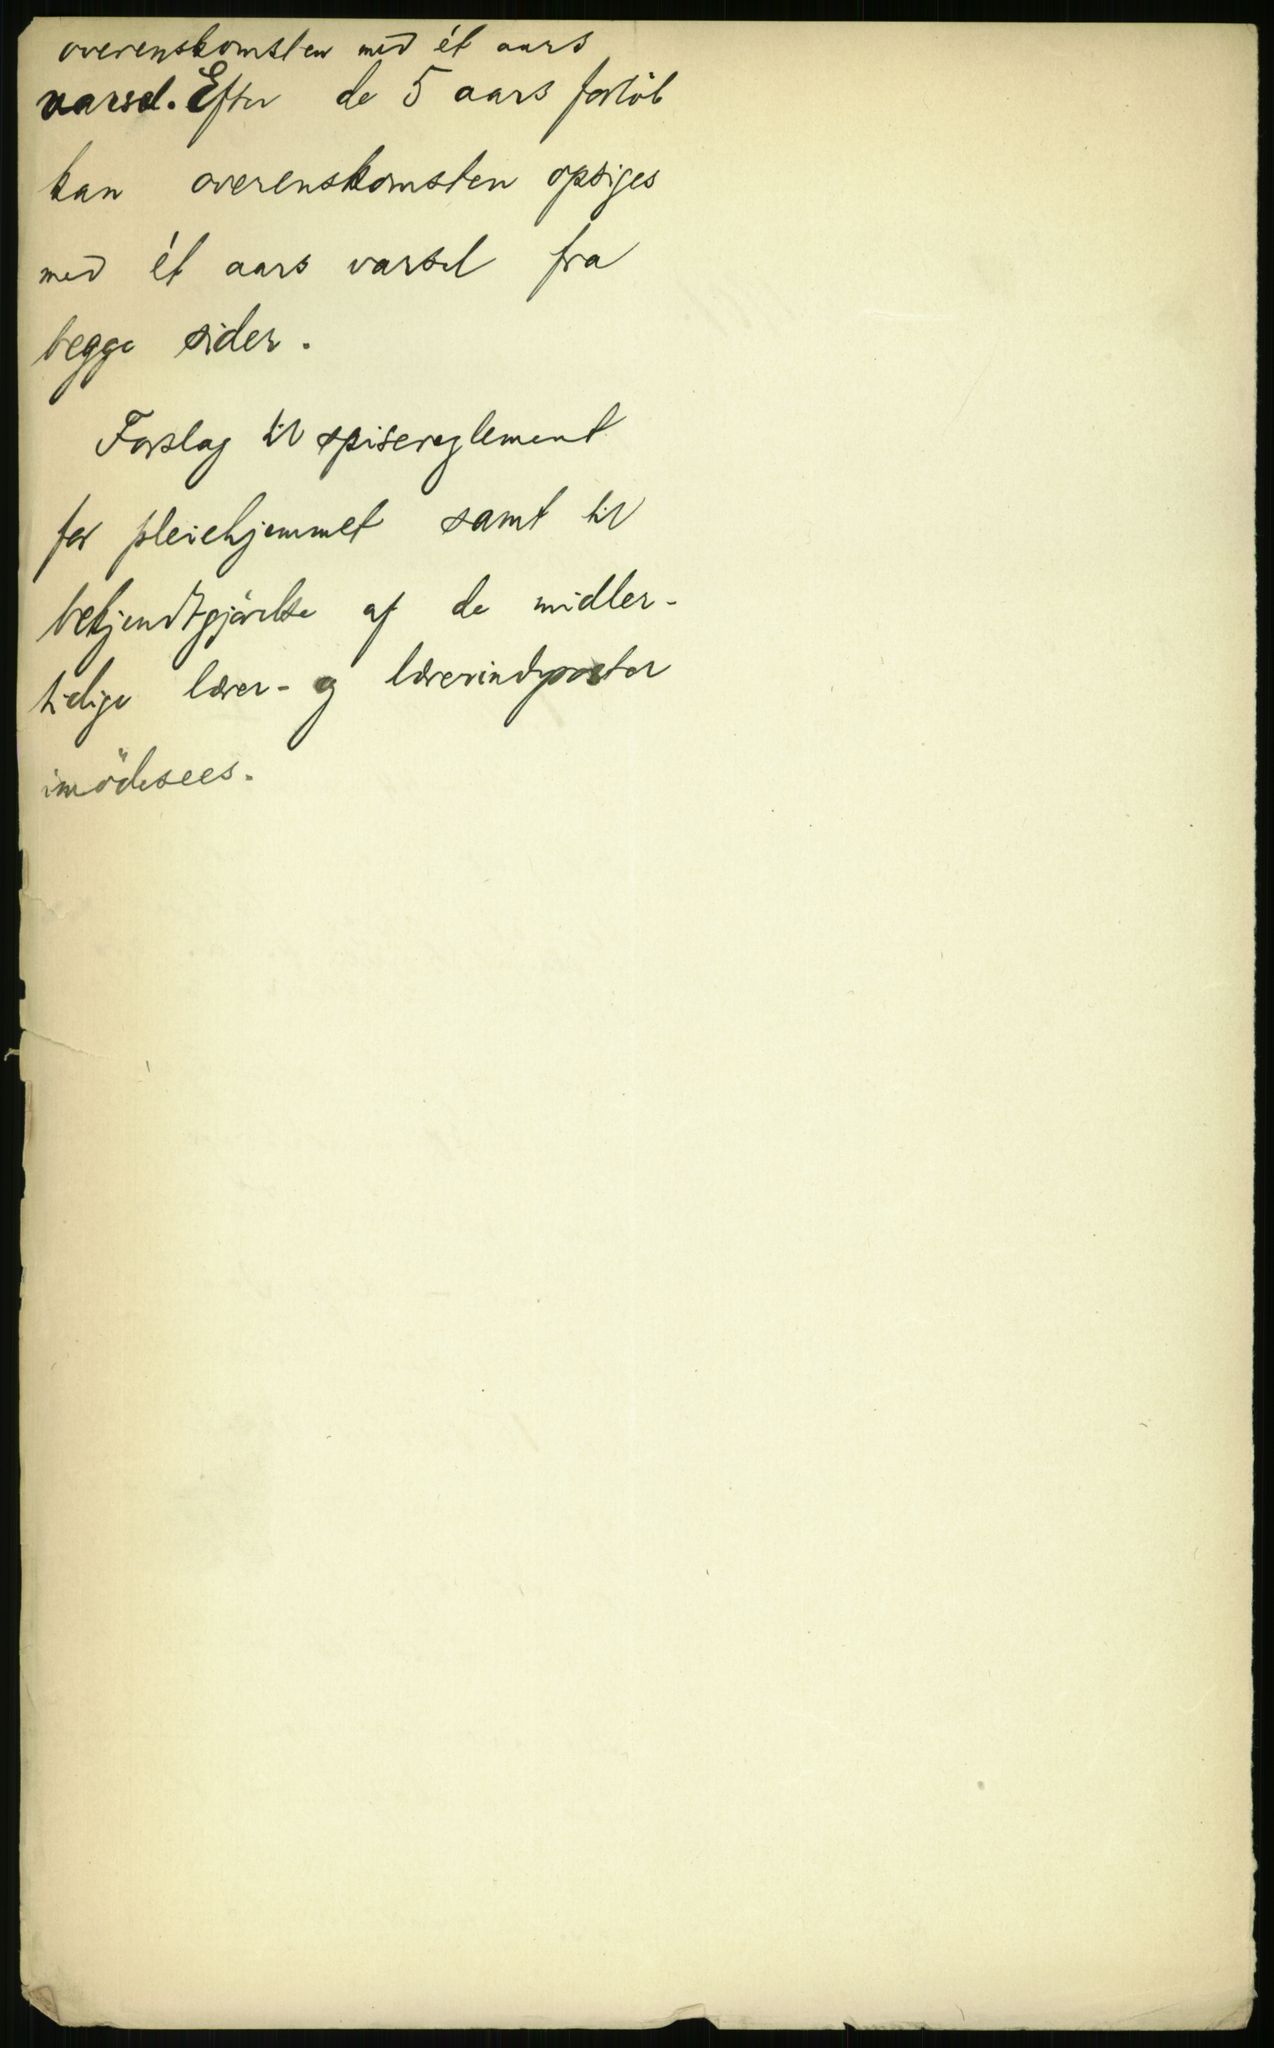 overenskomsten med ét aars
varsel. Efter de 5 aars forlöb
kan overenskomsten opsiges
med ét aars varsel fra
begge sider.
Forslag til spisereglement
for pleiehjemmet samt til
bekjendtgjörelse af de midler-
tidige lærer- og lærerindeposter
imödesees.